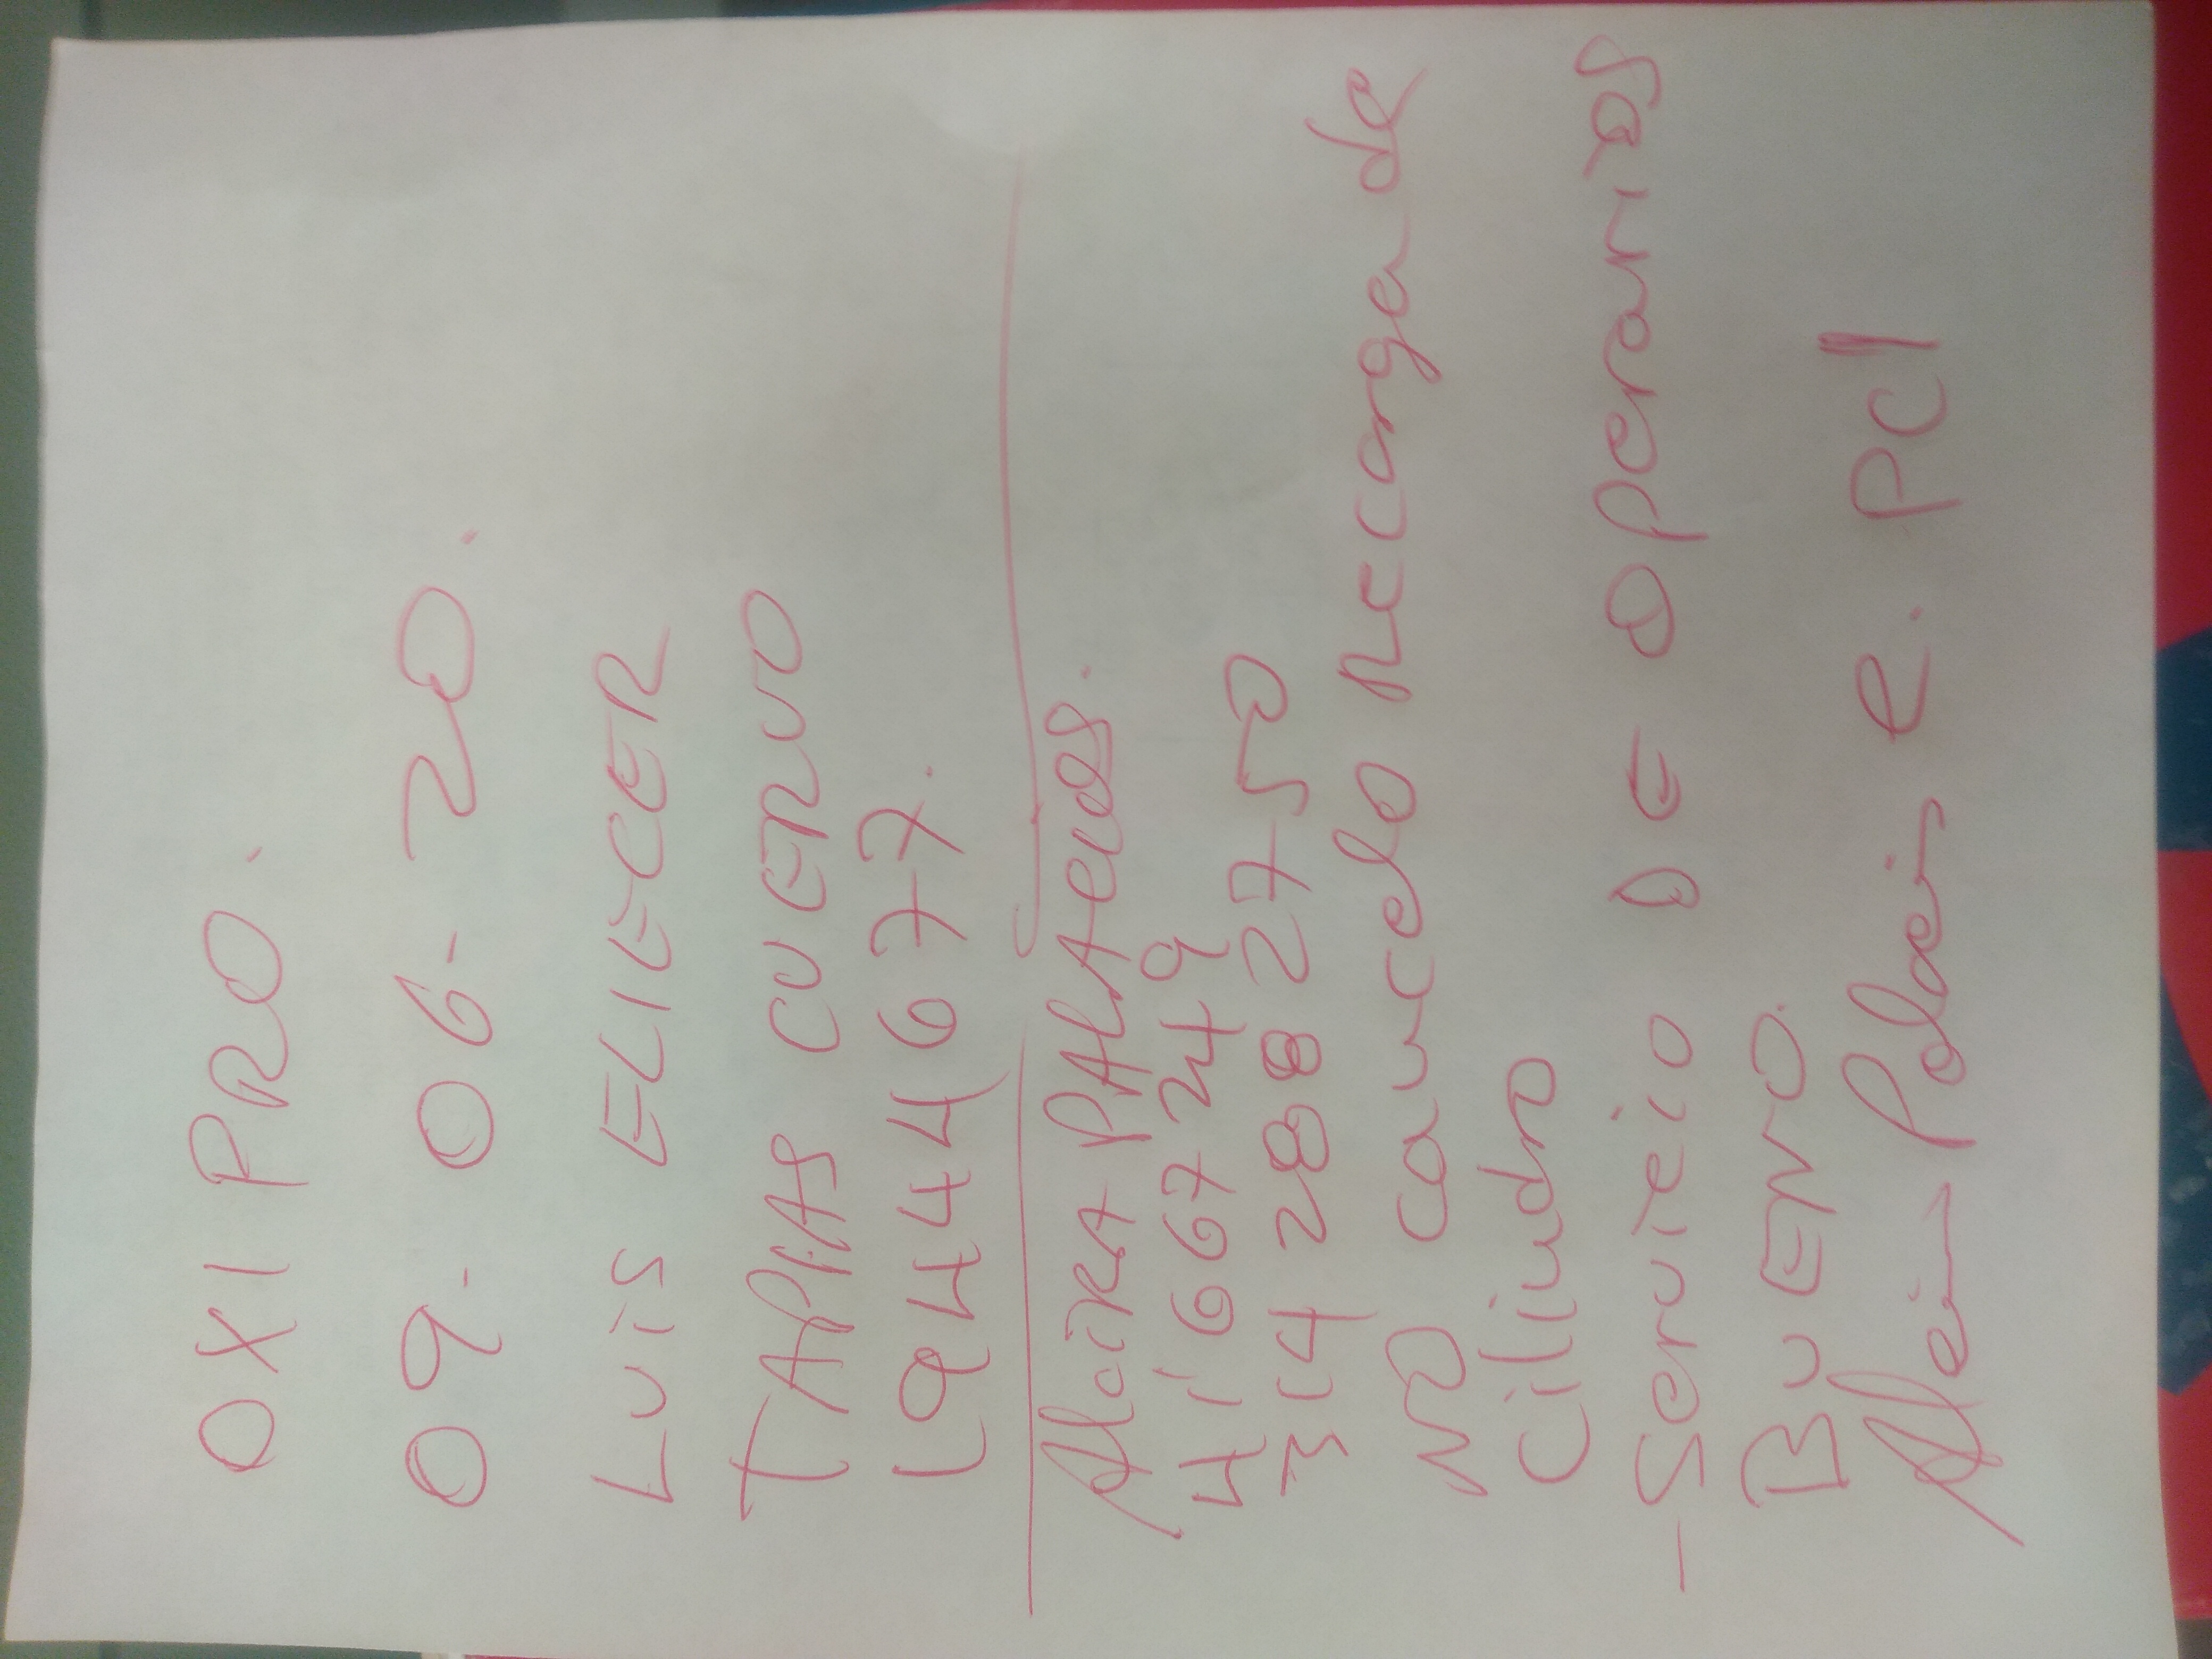 OXI PRO.
09-06-20.
Luis ELIECER
TAPIAS CUERVO
19444677.
Alcira PALAcios.
41667249
3142882750
NO cancelo Recarga de
Cilindro
- Servicio DE Operarios
BUENO.